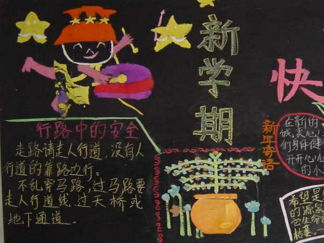 新学期
快
行路中的安全
走路请走人行道,没有人
行道的靠路边行。
不乱穿马路,过马路要
走人行道线,过天桥或
地下通道。
新年寄语
在新的
们身体健
开开心心
的小
希望是
的源泉